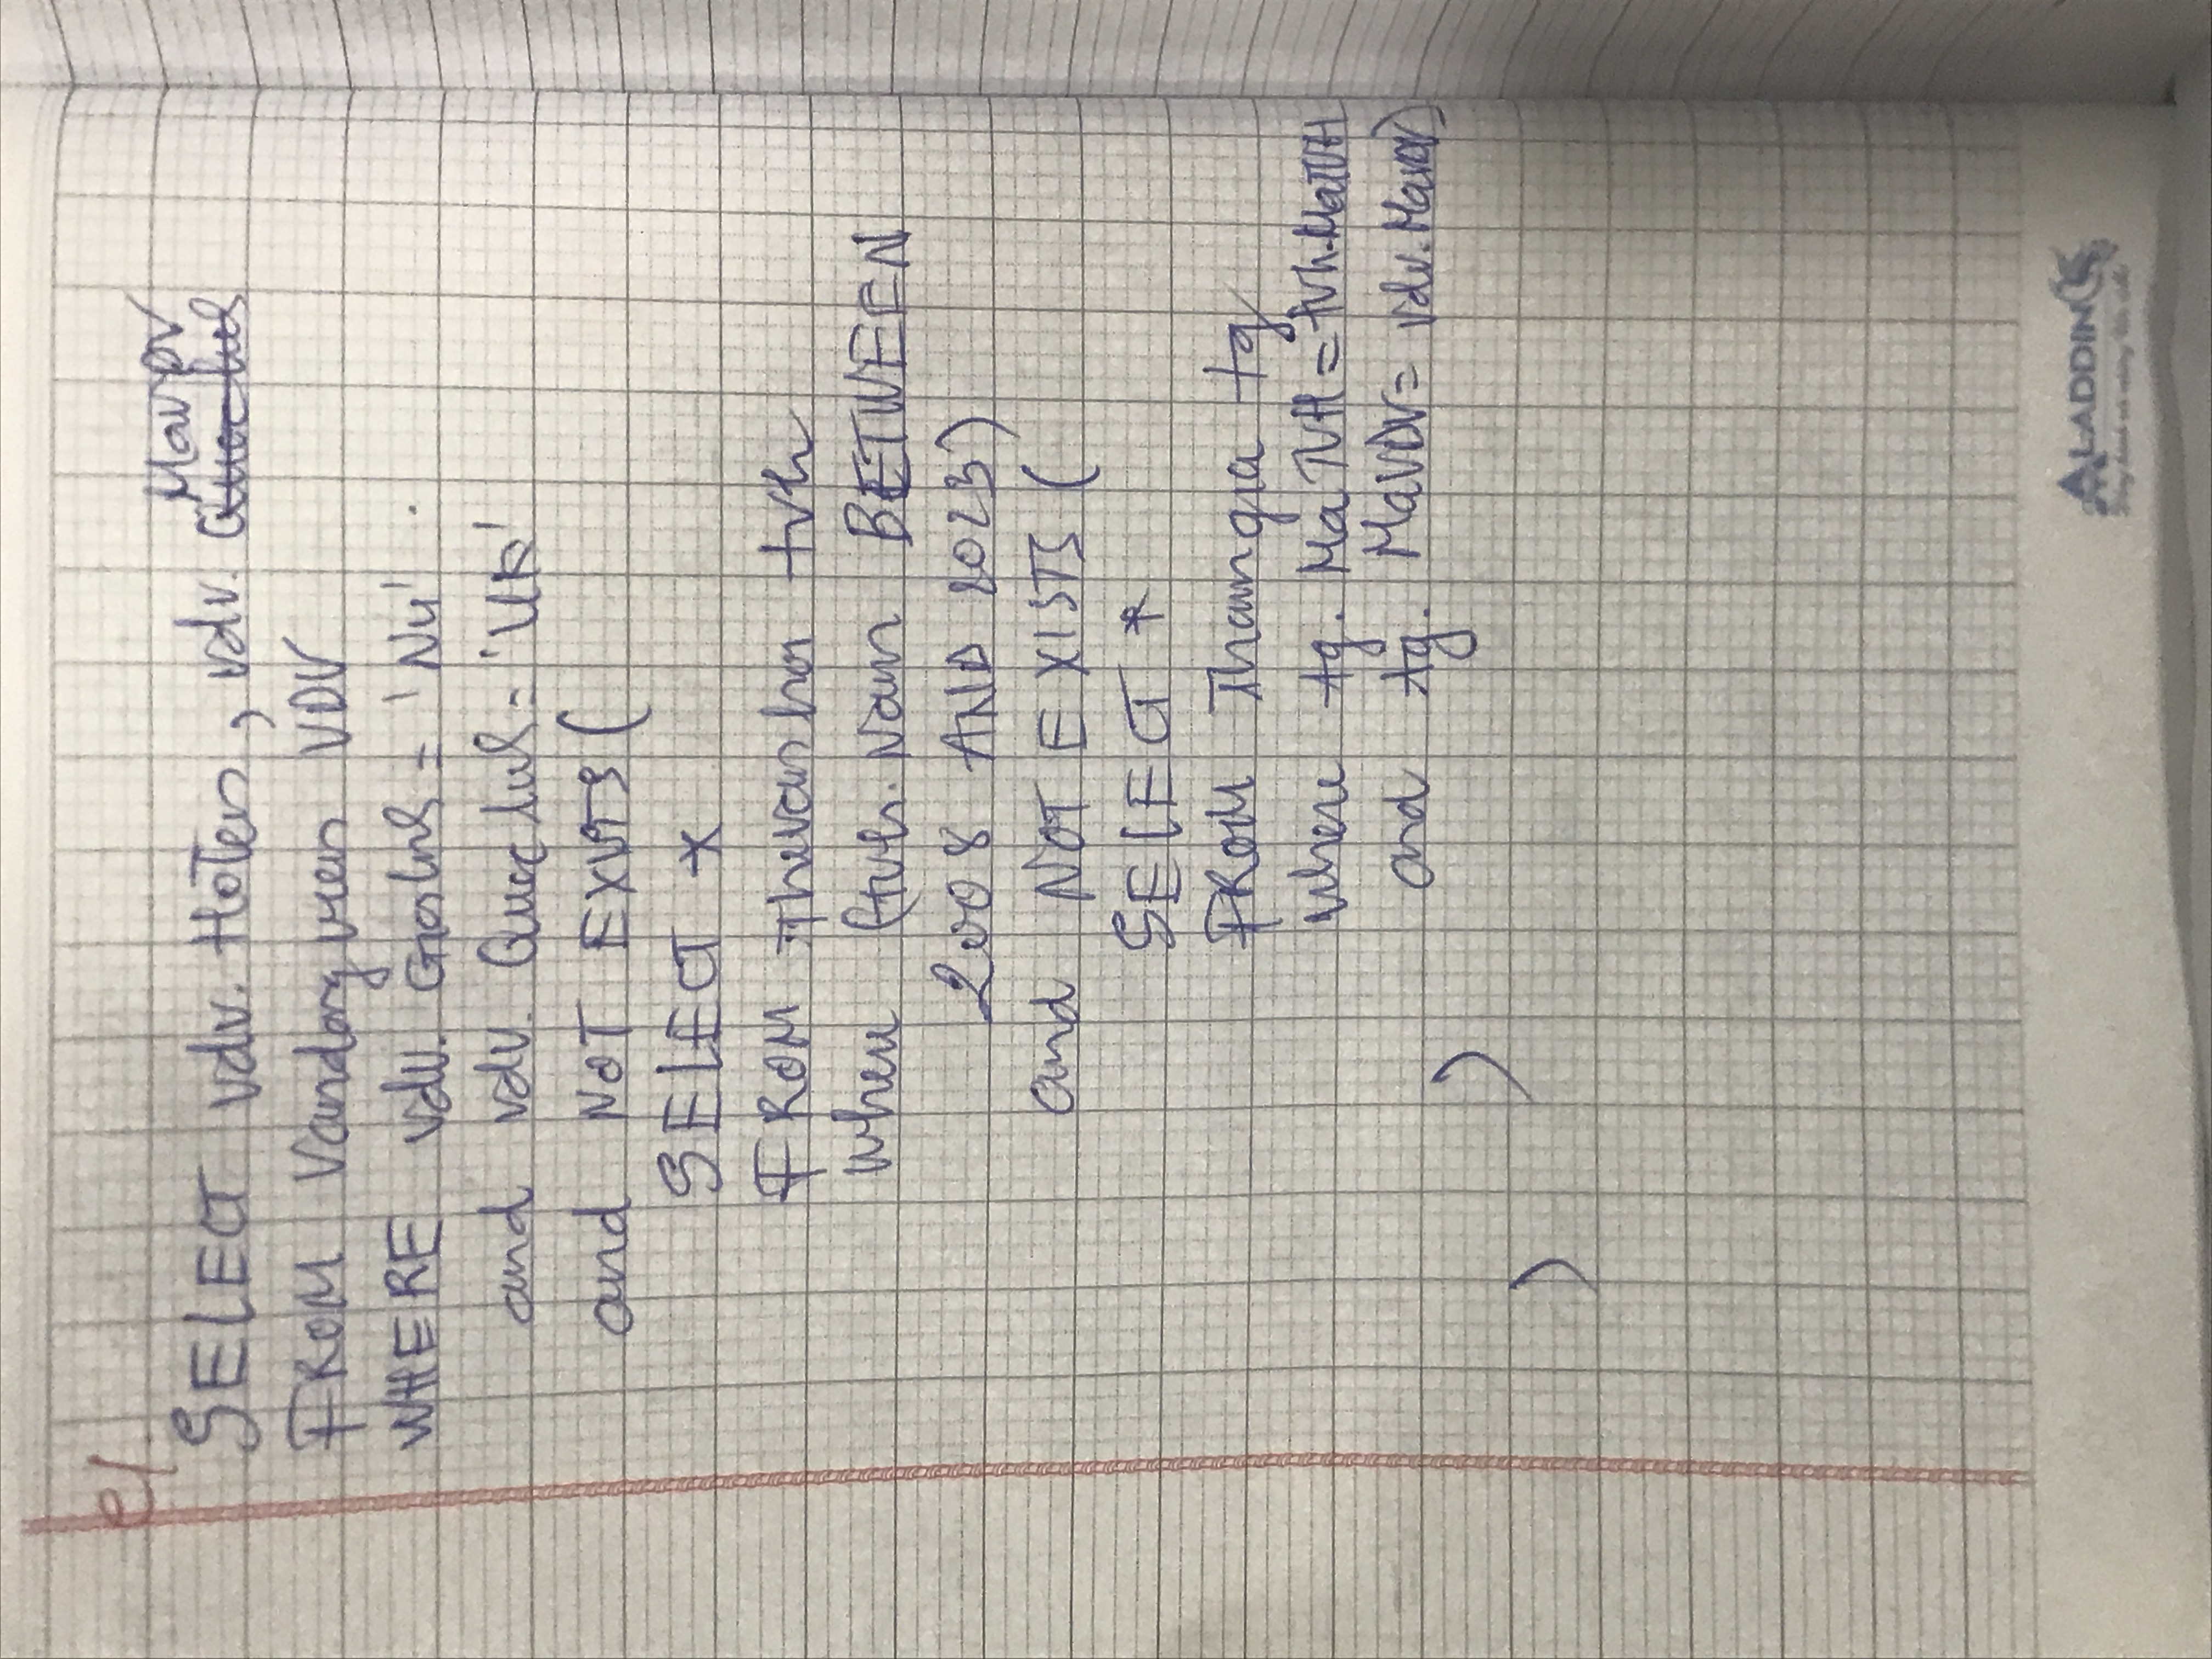 e/.
MaVDV
SELECT vdv. HoTen, vdv. Quoctich
FROM Vandongvien VDV
WHERE vdv. Gioitinh = 'Nu'
and vdv. Quoctich = 'UK'
and NOT EXISTS (
SELECT *
FROM Thevanhoi tvh
where (tvh. Nam BETWEEN
2008 AND 2023)
and NOT EXISTS (
SELECT *
FROM Thamgia tg
where tg. MaTVH = tvh.MaTVH
and tg. MaVDV = vdv.MaVDV)
)
)
ALADDIN